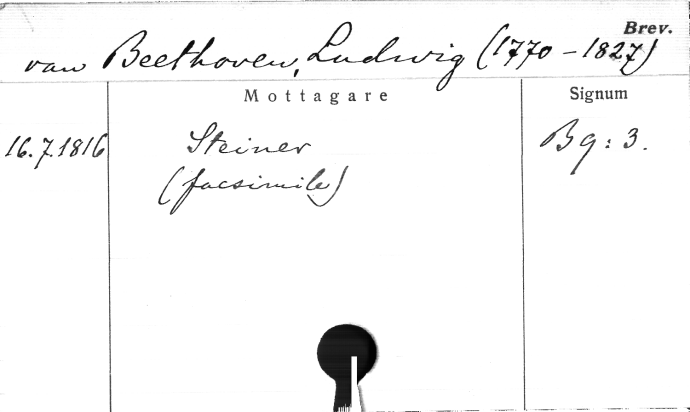 Brev.
van Beethoven, Ludwig (1770-1827)
Mottagare
Signum
16.7.1816 Steiner Bq: 3.
(facsimile)